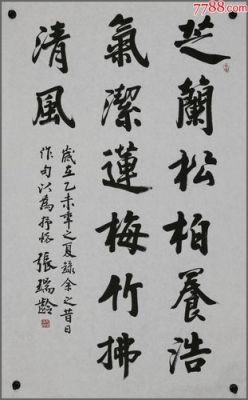 7788.com
芝蘭松柏養浩
氣潔蓮梅竹拂
清風
歲在乙未年之夏錄余之昔日
作句以為抒怀張瑞齡